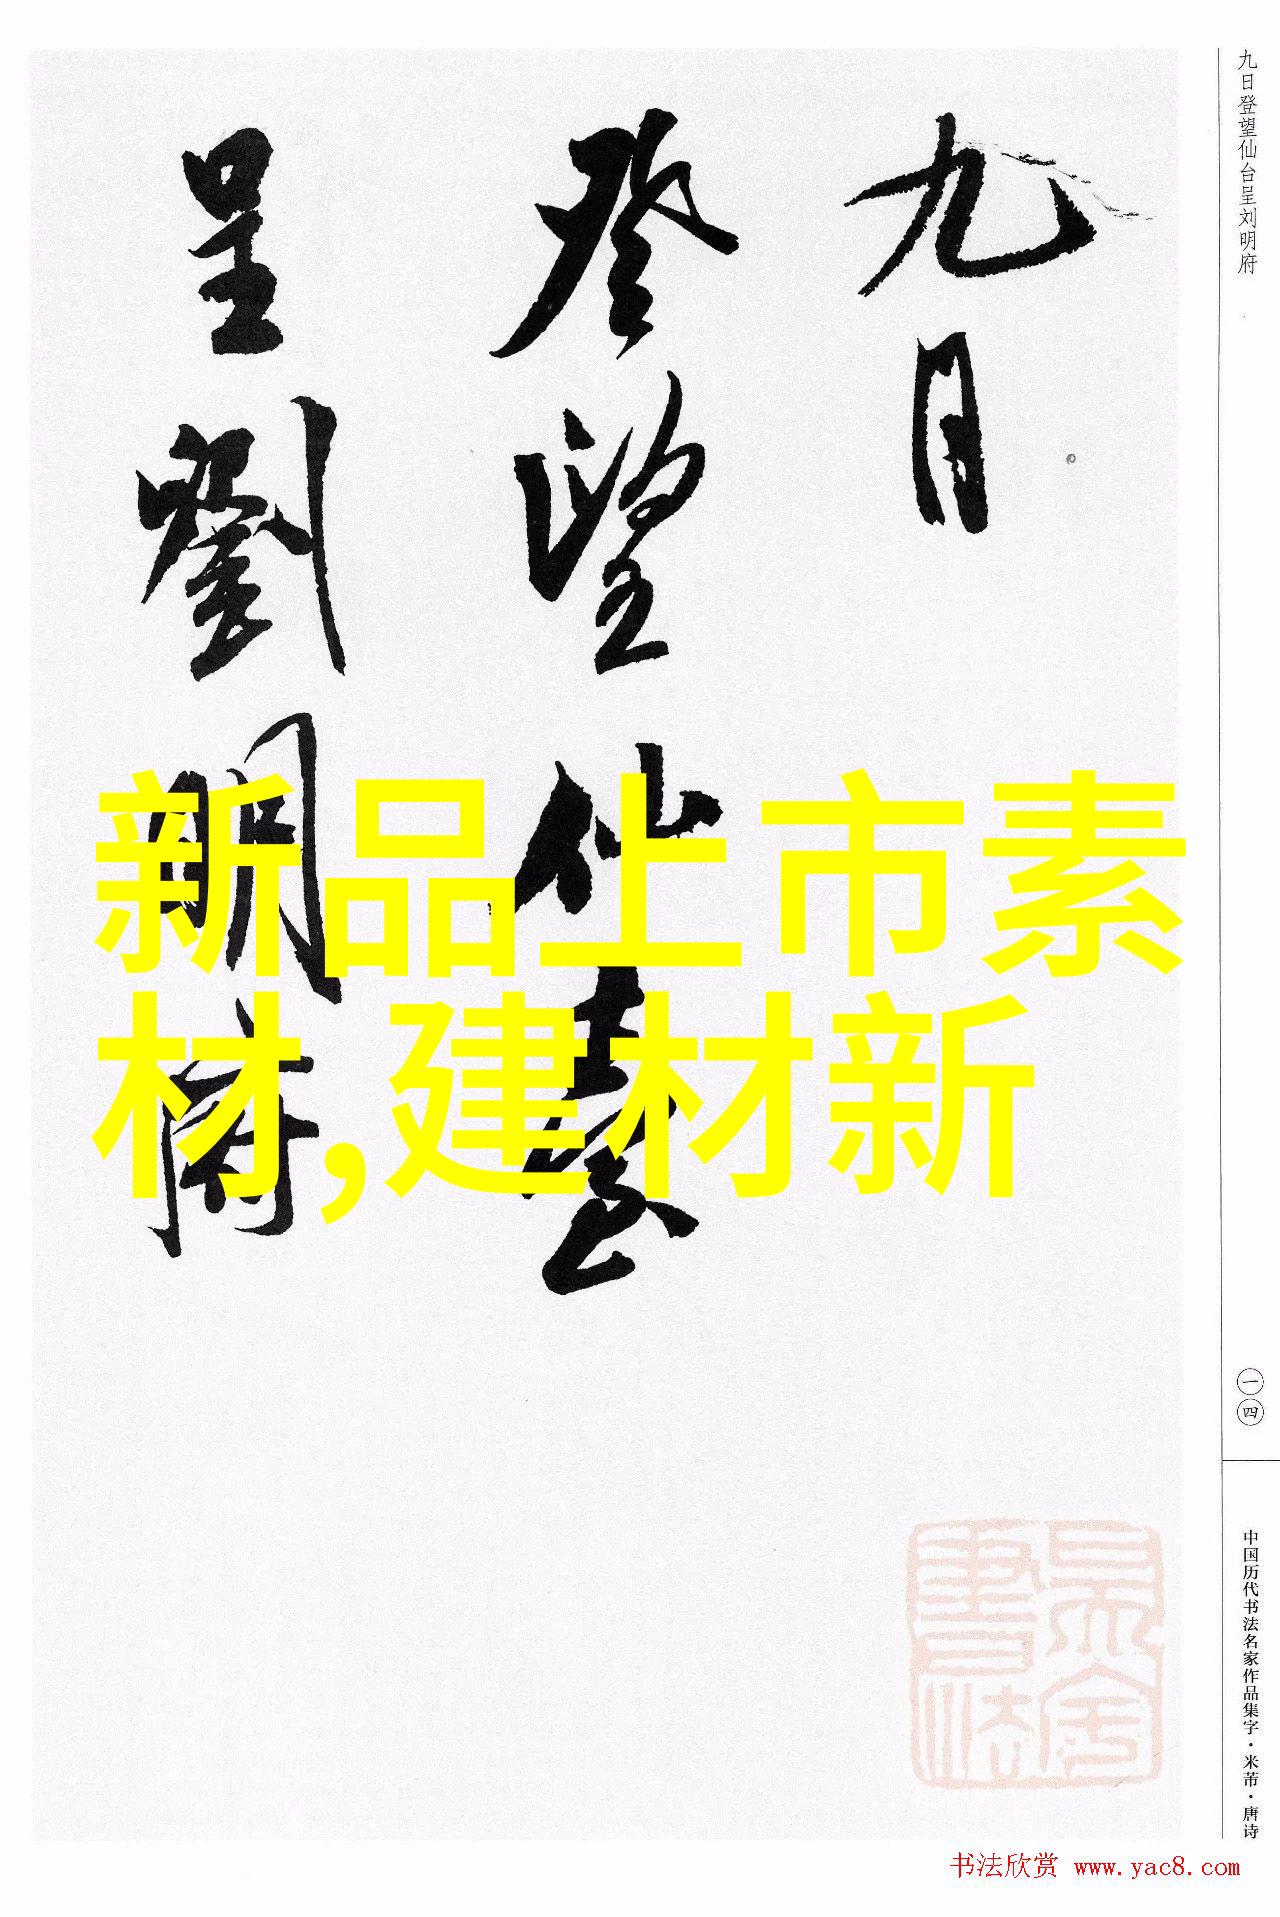 九日
登望仙臺
呈劉明府
新品上市素
材,建材新
九日登望仙台呈刘明府
一四
中国历代书法名家作品集字·米芾·唐诗
书法欣赏 www.yac8.com